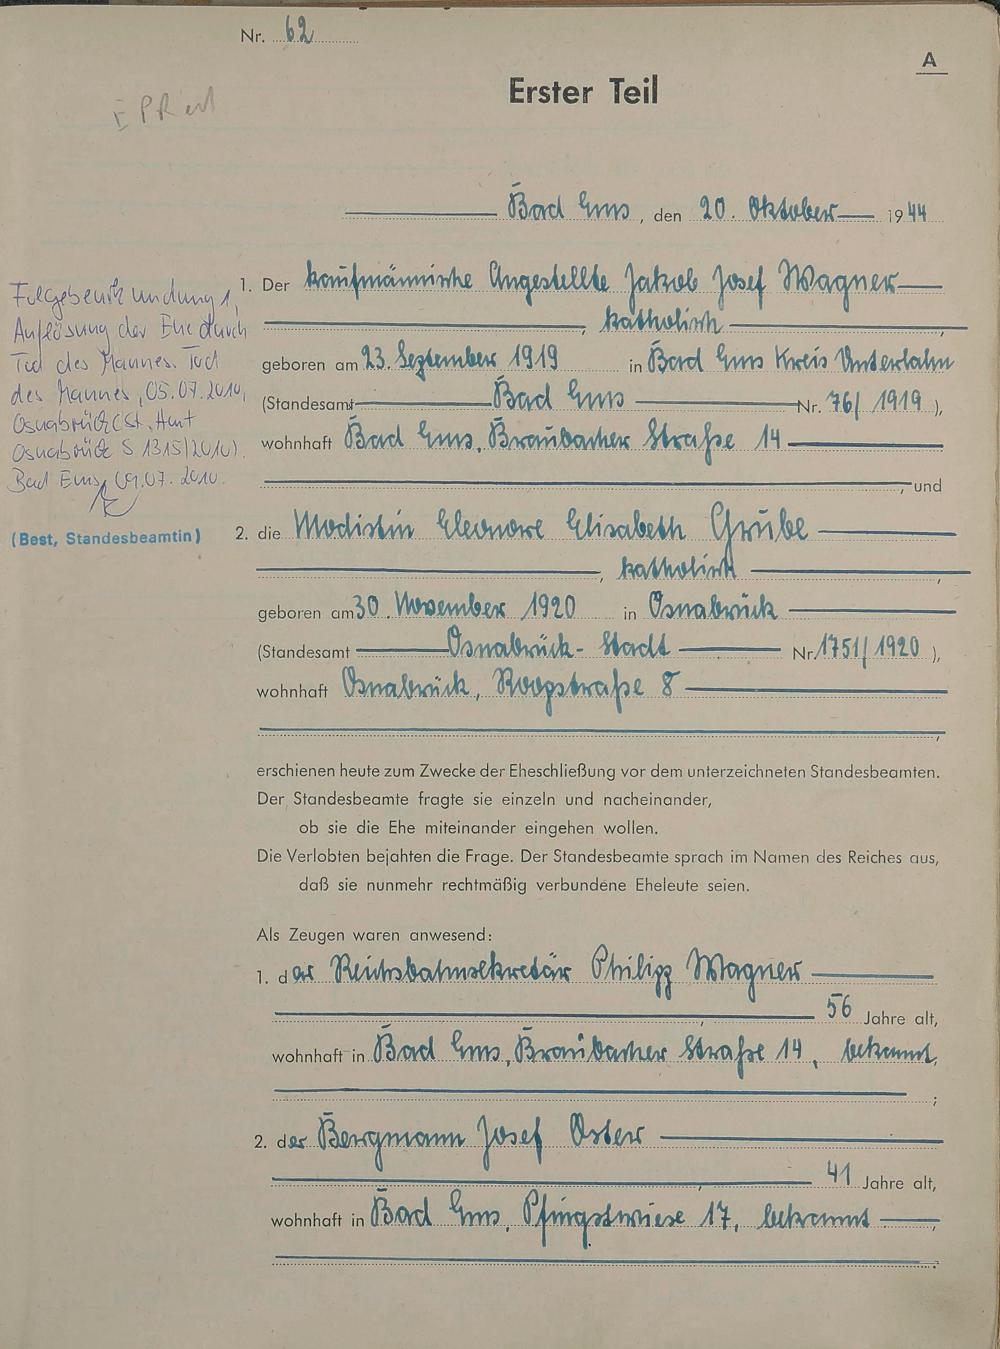 Nr. 62
A
Erster Teil
Bad Ems, den 20. Oktober 1944
1. Der kaufmännische Angestellte Jakob Josef Wagner
, katholisch ,
geboren am 23. September 1919 in Bad Ems Kreis Unterlahn
(Standesamt Bad Ems Nr. 76/1919),
wohnhaft Bad Ems, Braubacher Straße 14
, und
2. die Modistin Eleonore Elisabeth Grube
, katholisch ,
geboren am 30. November 1920 in Osnabrück
(Standesamt Osnabrück-Stadt Nr. 1751/1920),
wohnhaft Osnabrück, Roopstraße 8
,
erschienen heute zum Zwecke der Eheschließung vor dem unterzeichneten Standesbeamten.
Der Standesbeamte fragte sie einzeln und nacheinander,
ob sie die Ehe miteinander eingehen wollen.
Die Verlobten bejahten die Frage. Der Standesbeamte sprach im Namen des Reiches aus,
daß sie nunmehr rechtmäßig verbundene Eheleute seien.
Als Zeugen waren anwesend:
1. der Reichsbahnsekretär Philipp Wagner
, 56 Jahre alt,
wohnhaft in Bad Ems, Braubacher Straße 14, bekannt,
;
2. der Bergmann Josef Oster
, 41 Jahre alt,
wohnhaft in Bad Ems, Pfingstwiese 17, bekannt ,
.
Folgebeurkundung 1,
Auflösung der Ehe durch
Tod des Mannes. Tod
des Mannes, 05.07.2010,
Osnabrück (St. Amt
Osnabrück S 1315/2010).
Bad Ems, 09.07.2010.
(Best, Standesbeamtin)